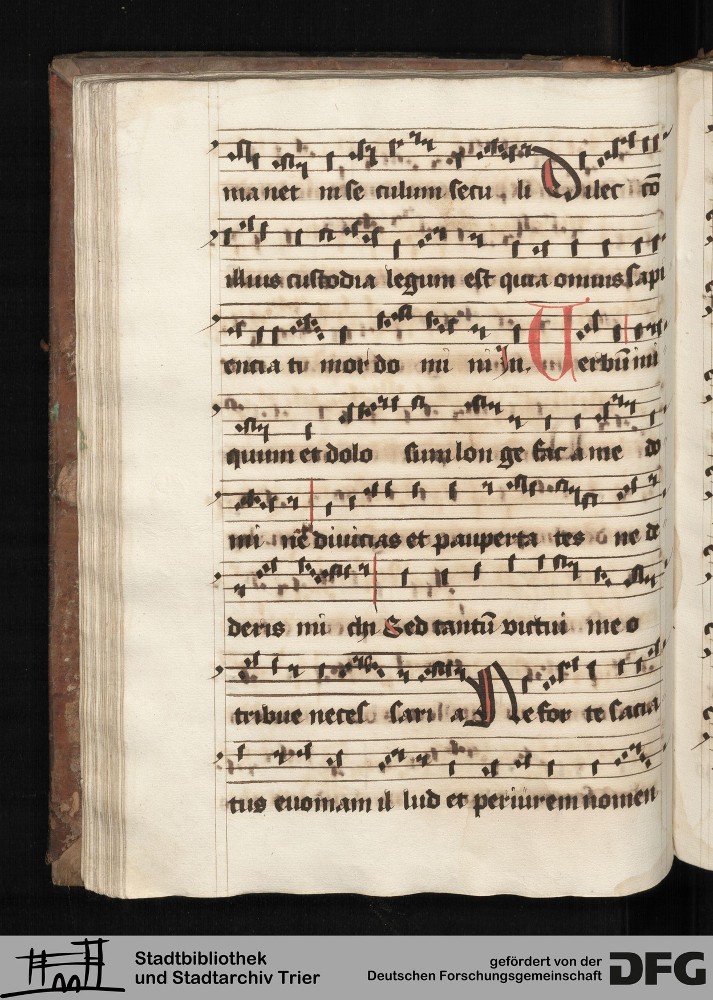 manet in se culum secu li Dilec cō
illius custodia legum est quia omnis sapi
encia ti mor do mi ni In Uerbū ini
quum et dolo sum lon ge fac a me do
mi nē diuicias et pauperta tes ne de
deris mi chi Sed tantū victui me o
tribue neces sari a Ne for te sacia
tus euomam il lud et periurem nomen
Stadtbibliothek
und Stadtarchiv Trier
gefördert von der
Deutschen Forschungsgemeinschaft
DFG